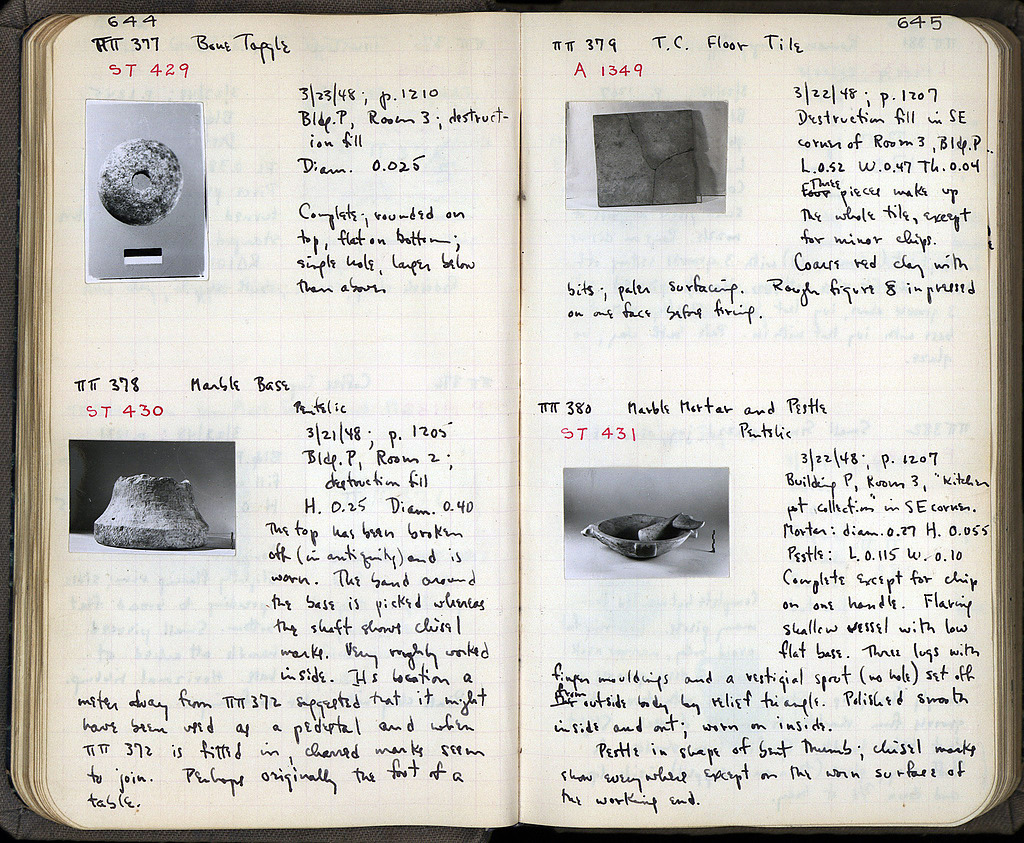 644
ΠΠ 377 Bone Toggle
ST 429
3/23/48 ; p. 1210
Bldg. P, Room 3 ; destruct-
ion fill
Diam. 0.025
Complete ; rounded on
top, flat on bottom ;
single hole, larger below
than above.
ΠΠ 378 Marble Base
ST 430
Pentelic
3/21/48 ; p. 1205
Bldg. P, Room 2 ;
destruction fill
H. 0.25 Diam. 0.40
The top has been broken
off (in antiquity) and is
worn. The band around
the base is picked whereas
the shaft shows chisel
marks. Very roughly worked
inside. Its location a
meter away from ΠΠ 372 suggested that it might
have been used as a pedestal and when
ΠΠ 372 is fitted in, charred marks seem
to join. Perhaps originally the foot of a
table.
645
ΠΠ 379 T.C. Floor Tile
A 1349
3/22/48 ; p. 1207
Destruction fill in SE
corner of Room 3, Bldg. P.
L. 0.52 W. 0.47 Th. 0.04
Three
Four pieces make up
the whole tile, except
for minor chips.
Coarse red clay with
bits ; paler surfacing. Rough figure 8 impressed
on one face before firing.
ΠΠ 380 Marble Mortar and Pestle
ST 431
Pentelic
3/22/48 ; p. 1207
Building P, Room 3, "kitchen
pot collection" in SE corner.
Mortar : diam. 0.27 H. 0.055
Pestle : L. 0.115 W. 0.10
Complete except for chip
on one handle. Flaring
shallow vessel with low
flat base. Three lugs with
finger mouldings and a vestigial spout (no hole) set off
from
outside body by relief triangle. Polished smooth
inside and out ; worn on inside.
Pestle in shape of bent thumb ; chisel marks
show everywhere except on the worn surface of
the working end.